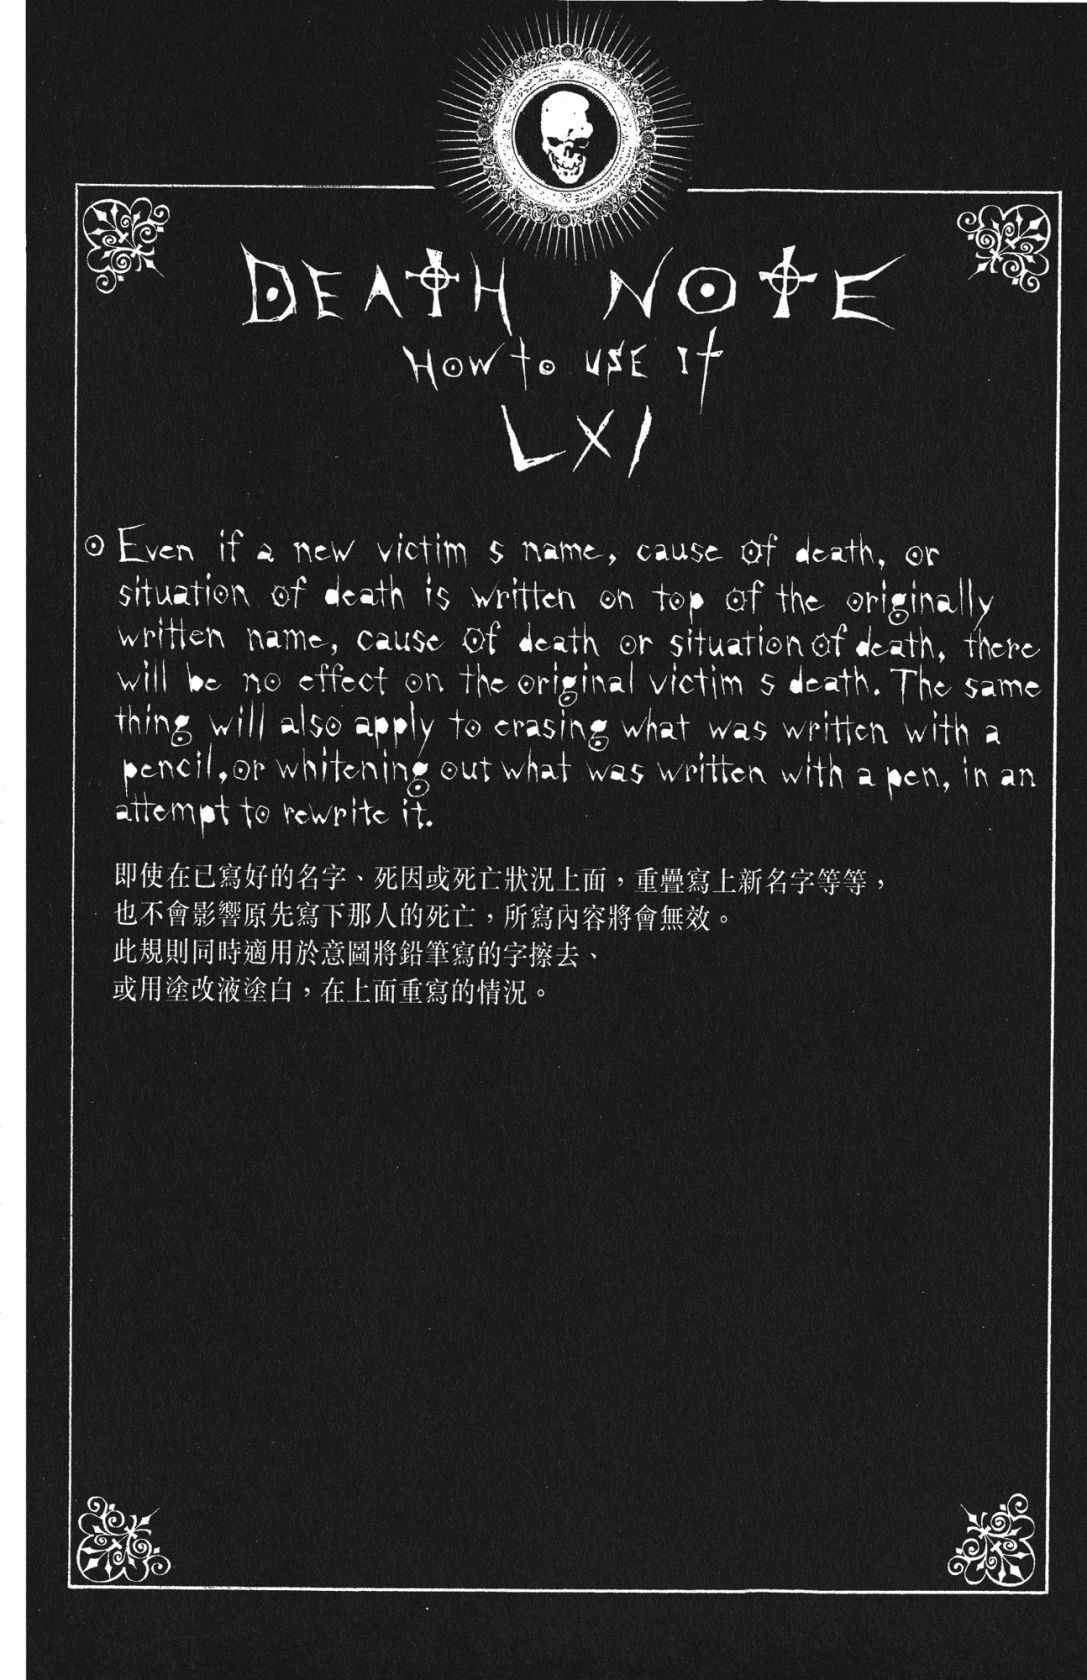 DEATH NOTE
How to use it
LXI
Even if a new victim s name, cause of death, or
situation of death is written on top of the originally
written name, cause of death or situation of death, there
will be no effect on the original victim s death. The same
thing will also apply to erasing what was written with a
pencil, or whitening out what was written with a pen, in an
attempt to rewrite it.
即使在已寫好的名字、死因或死亡狀況上面，重疊寫上新名字等等，
也不會影響原先寫下那人的死亡，所寫內容將會無效。
此規則同時適用於意圖將鉛筆寫的字擦去、
或用塗改液塗白，在上面重寫的情況。